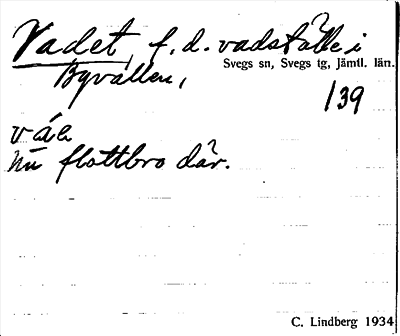 Vadet, f. d. vadställe i
Byvallen, Svegs sn, Svegs tg, Jämtl. län.
139
nu flottbro där.
C. Lindberg 1934